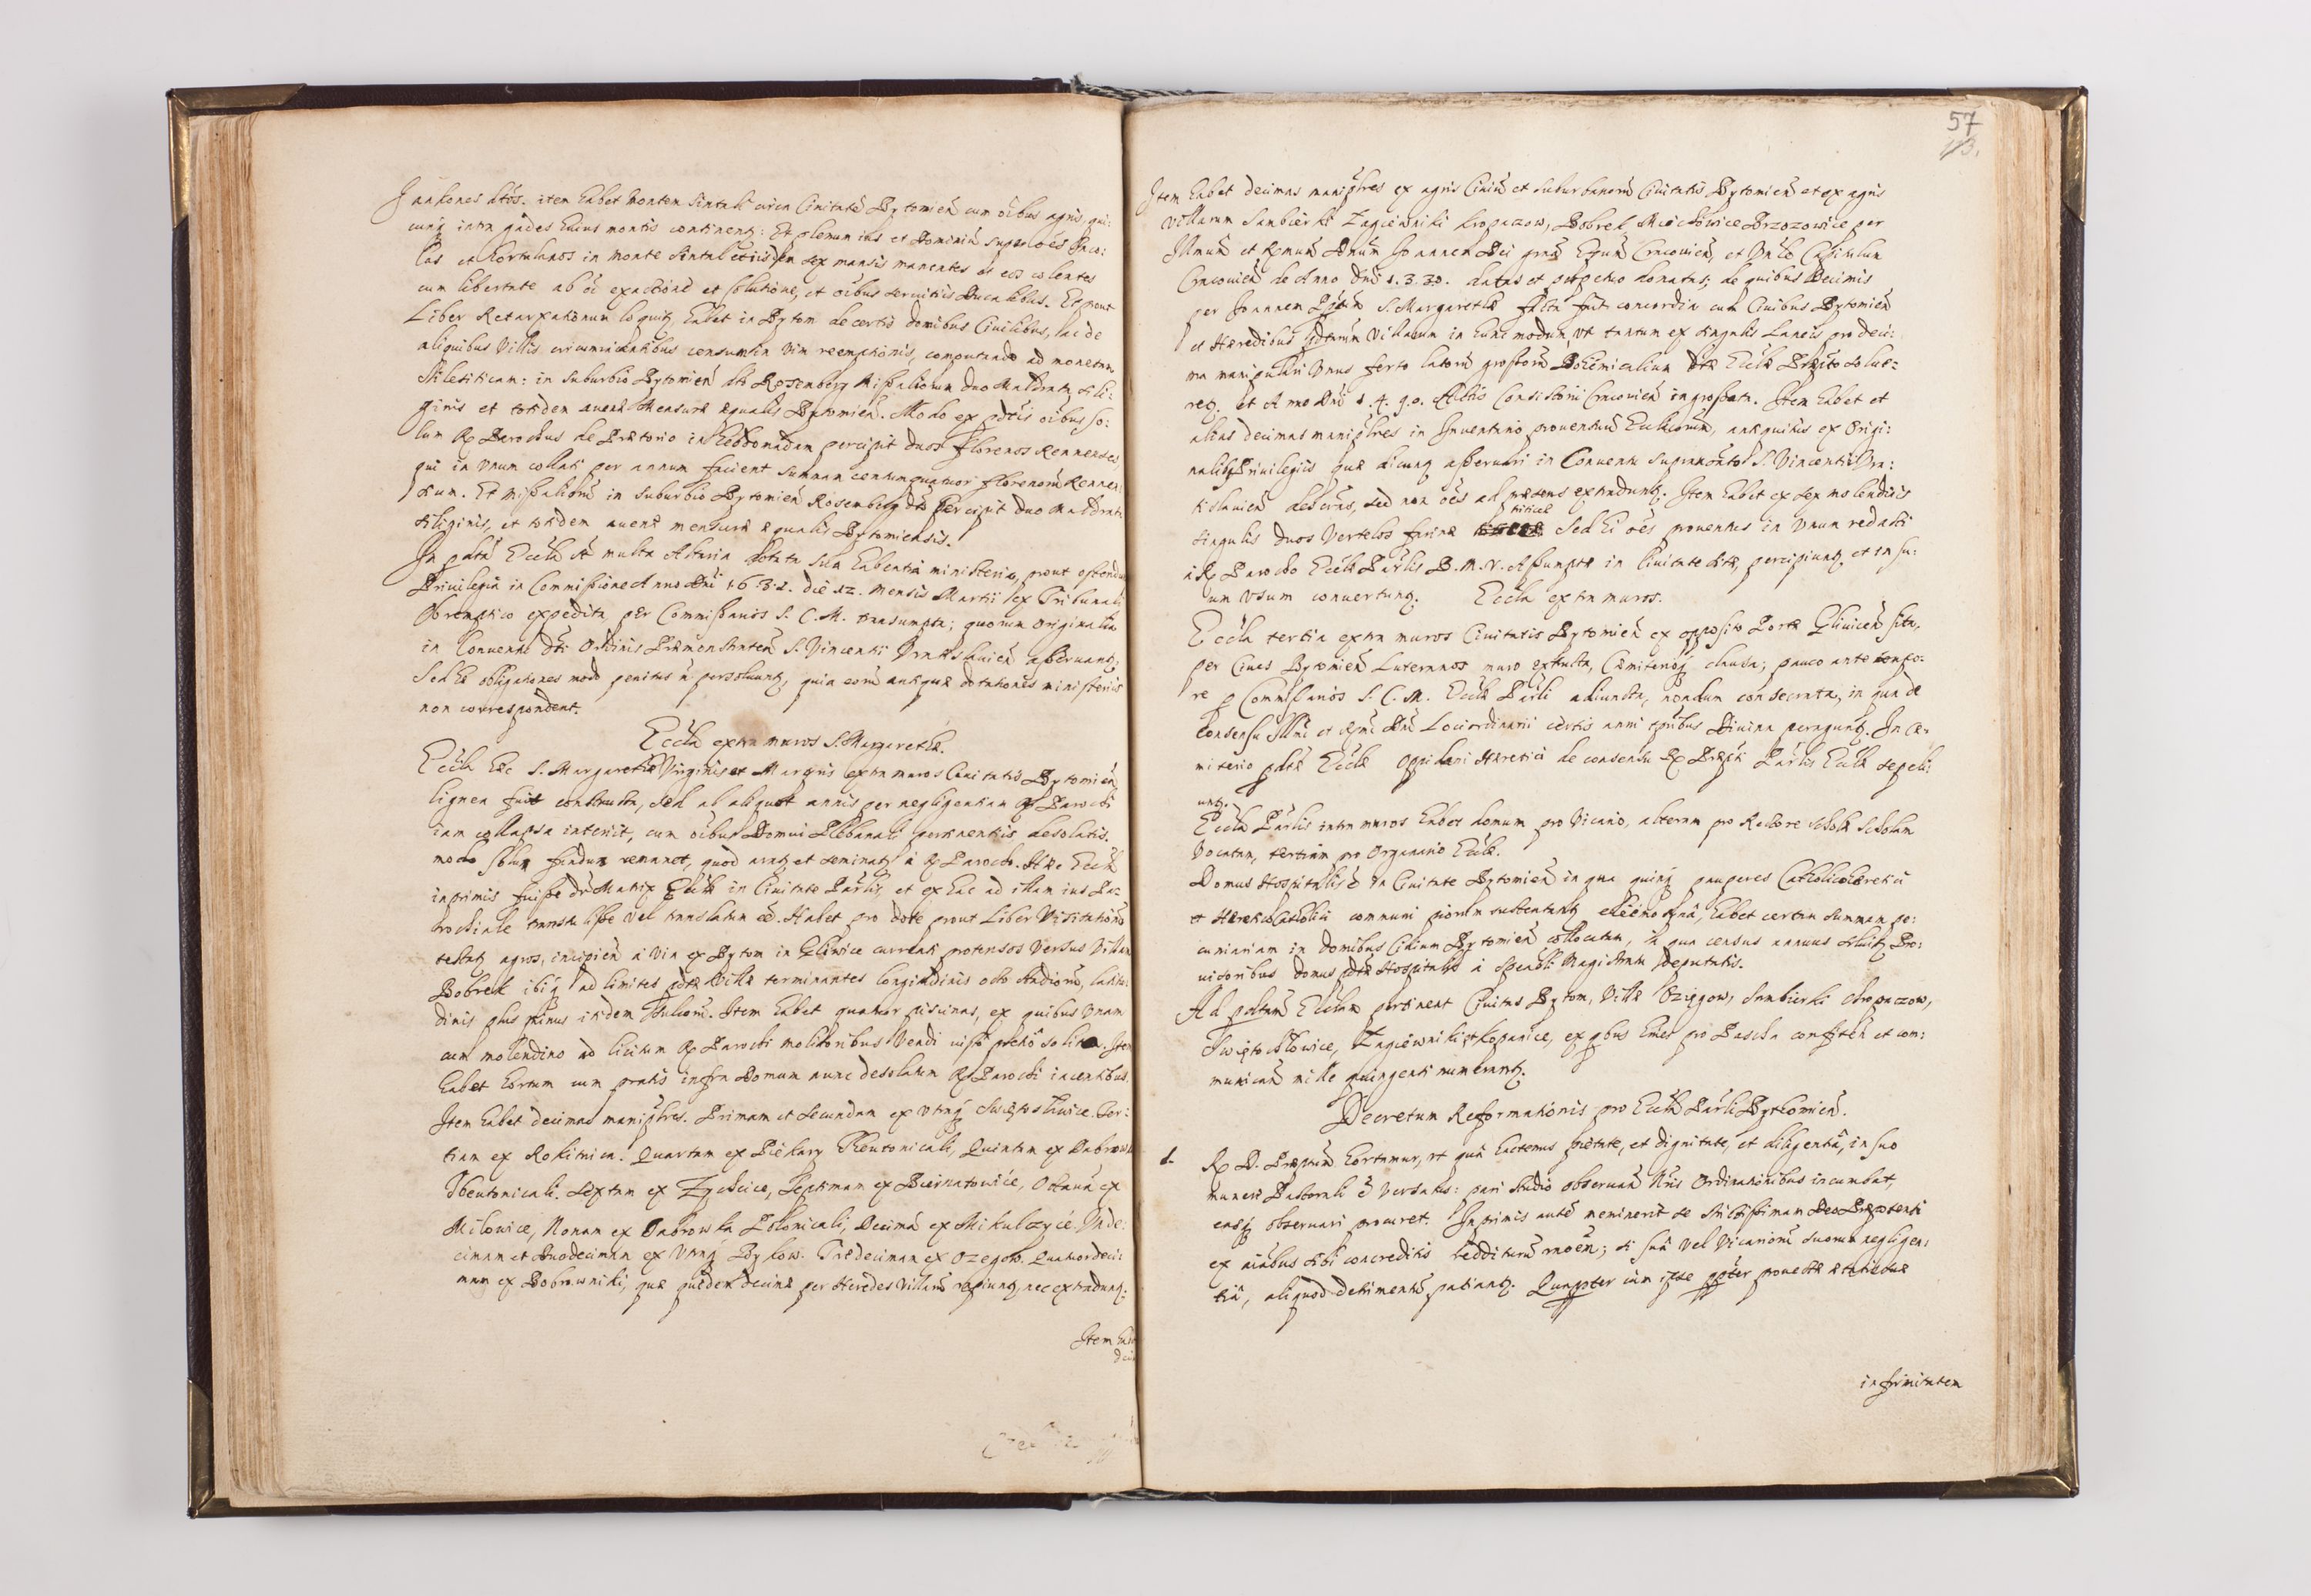 aliones dtos. item habet montem Sintali circa Civitatē Bytomien̄ cum oībus agris, qui:
cunq̨ intra gades huius montis continentr: Et plenum ius et Dominiū supra oēs Inco:
las et hortulanos in monte Sintal et iisdem sex mansis manentes et eos colentes
cum libertate ab oī exactione et solutione, et oībus servitiis Ducalibus. Et prout
Liber Retaxationum loquitr, habet in Bytom de certis domibus Civilibus, ac de
aliquibus Villis circumiacentibus censum in vim reemptionis, computando ad monetam
Silesiticam: in suburbio Bytomien̄ dto Rozenberg Missalium duo Maldrata sili:
ginis et totidem avenæ Mensuræ æqualis Bytomien̄. Modo ex pdctis oībus so:
lum Rx Parochus de Prætorio in hebdomadam percipit duos Florenos Rennenses,
qui in unum collati per annum faciunt summam centumquatuor florenorū Rennen:
sium. Et Missaliorū in suburbio Bytomien̄ Rosenberg dto percipit duo Maldrata
siliginis, et totidem avenæ mensuræ æqualis Bytomiensis.
In pdtā Ecclā st̄ multa Altaria dotata sua habentia ministeria, prout ostendunt
Privilegia in Commissione Anno Dnī 1632. die 12. mensis Martii ex Tribunali
Opremptico expedita per Commissarios S. C. M. transumpta; quorum originalia
in Conventu dti Ordinis Præmonstraten̄ S. Vincentii Vratislavien̄ asservantr;
Sed hæ obligationes modo penitus n̄ persolvuntr, quia eorū antiquæ dotationes ministeriis
non correspondent.
Ecclā extra muros S. Margarethæ.
Ecclā hæc S. Margarethæ Virginis et Martyris extra muros Civitatis Bytomien̄
lignea fuit constructa, sed ab aliquot annis per negligentiam Rx Parochi
iam collapsa interiit, cum oībus Domui Plebanali pertinentiis desolatis.
modo solum fundus remanet, quod aratr et seminatr à Rx Parocho. Hæc Ecclā
inprimis fuisse dr Matrix Ecclæ in Civitate Parlis, et ex hac ad illam ius Pa:
rochiale transtulisse vel translatum eē. Habet pro dote prout Liber Visitationū
testatr agros, incipien̄ à via ex Bytom in Gliwice currenti protensos versus Villam
Bobrek ibiq̨ ad limites pdtæ Villæ terminantes longitudinis octo stadiorū, latitu:
dinis plus minus itidem stadiorū. Item habet quatuor piscinas, ex quibus unam
cum molendino ad licitum Rx Parochi molitoribus vendi
Item
habet hortum cum pratis infra Domum nunc desolatam Rx Parochi iacentibus.
Item habet decimas manipłres. Primam et Secundam ex utraq̨ Swiętochlowice. Ter:
tiam ex Rokitnica. Quartam ex Piekary Theutonicali, Quintam ex Dabrowka
Theutonicali. Sextam ex Zychcice, Septimam ex Biernatowice, Octavā ex
Milowice, Nonam ex Dabrowka Polonicali, Decimā ex Mikulczyce, Unde:
cimam et Duodecimam ex utraq̨ Bykow. Tredecimam ex Ozegow. Quatuordeci:
mam ex Bobrowniki, quæ quidem decimæ per Heredes Villarū rapiuntr, nec extraduntr.
Item habet
deci
57
113.
Item habet decimas manipłres ex agris Civiū et suburbanorū Civitatis Bytomien̄ et ex agris
Villarum Sambierki Zagiewniki Kropaczow, Bobrek Miechowice Brzozowice per
Illmum et Rmum Dnum Joannem Dei gratia Epum Cracovien̄, et Vnlē Capitulum
Cracovien̄ de Anno Dni 1.3.30. datas et perpetuo donatas; de quibus Decimis
per Joannem Pptum S. Margarethæ facta fuit concordia cum Civibus Bytomien̄
et Hæredibus pdtarum Villarum in hunc modum, ut tantum ex singulis Laneis pro deci:
ma manipulari Unus ferto latorū grossorū Bohemicalium dtæ Ecclæ Præpto solve:
retr. et Anno Dni 1.4.90. Actis Consistorii Cracovien̄ ingrossata. Item habet et
alias decimas manipłres in Inventario proventuū Ecclarum, antiquitus ex Origi:
nalibus Privilegiis quæ dicuntr asservari in Conventu supranotato S. Vincentii Vra:
tislavien̄ descriptas, sed non oēs ad præsens extraduntr. Item habet ex sex molendinis
singulis duos Vertelos farinæ triticeæ Sed hi oēs proventus in unum redacti
à Rx Parocho Ecclæ Parlis B. M. V. Assumptæ in Civitate sitæ, percipiuntr et in su:
um usum convertuntr. Ecclā extra muros.
Ecclā tertia extra muros Civitatis Bytomien̄ ex opposito Portæ Glivicen̄ sita,
per Cives Bytomien̄ Luteranos muro extructa, Cæmiterioq̨ clausa; pauco ante tempo:
re p Commissarios S. C. M. Ecclæ Parli adiuncta, nondum consecrata, in qua de
Consensu Illmi et Rmi Dni Lociordinarii certis anni tpribus Divina peraguntr. In Cæ:
miterio pdtæ Ecclæ Oppidani Hæretici de consensu Rx Præpti Parlis Ecclæ sepeli:
untr.
Ecclā Parlis intra muros habet domum pro Vicario, alteram pro Rectore scholæ Scholam
vocatam, tertiam pro Organario Ecclæ.
Domus Hospitalis ē in Civitate Bytomien̄ in qua quinq̨ pauperes Catholicohæretici
et Hæreticocatholici communi piorum sustentantr eleemosynā, habet certam summam pe:
cuniariam in domibus Civium Bytomien̄ collocatam, à qua census annuus solvitr Pro:
visoribus domus pdtæ Hospitalis à Spectabli Magistratu deputatis.
Ad pdtam Ecclam pertinent Civitas Bytom, Villæ Ozięgow, Sambierki Chropaczow,
Swiętochlowice, Zagiewniki et Lopanice, ex qbus hōies pro Pascha confiten̄ et com:
munican̄ mille quingenti numerantr.
Decretum Reformationis pro Ecclā Parli Bythomien̄.
1. Rx D. Præptum hortamur, ut quā hactenus pietate, et dignitate, et diligentiā, in suo
munere Pastorali ē versatus: pari studio observan̄ Nris Ordinationibus incumbat,
easq̨ observari procuret. Inprimis autē meminerit se strictissimam Deo Præpotenti
ex aīabus sibi concreditis redditurū raōem; si suā vel Vicariorū suorum negligen:
tiā, aliquod detrimentū patiantr. Quapter cùm ipse ppter provectæ ætatis suæ
infirmitatem